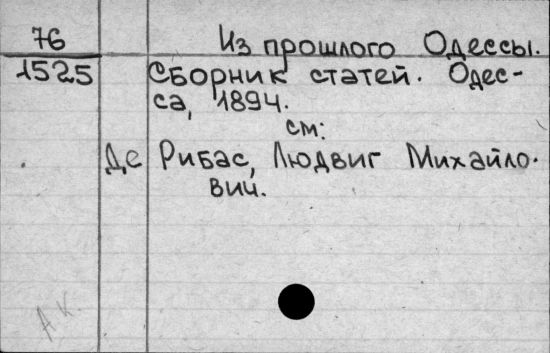 76 Из прошлого Одессы.
1525 Сборник статей. Одес-
са, 1894.
см:
Де Рибас, Людвиг Михайло-
вич.
АК